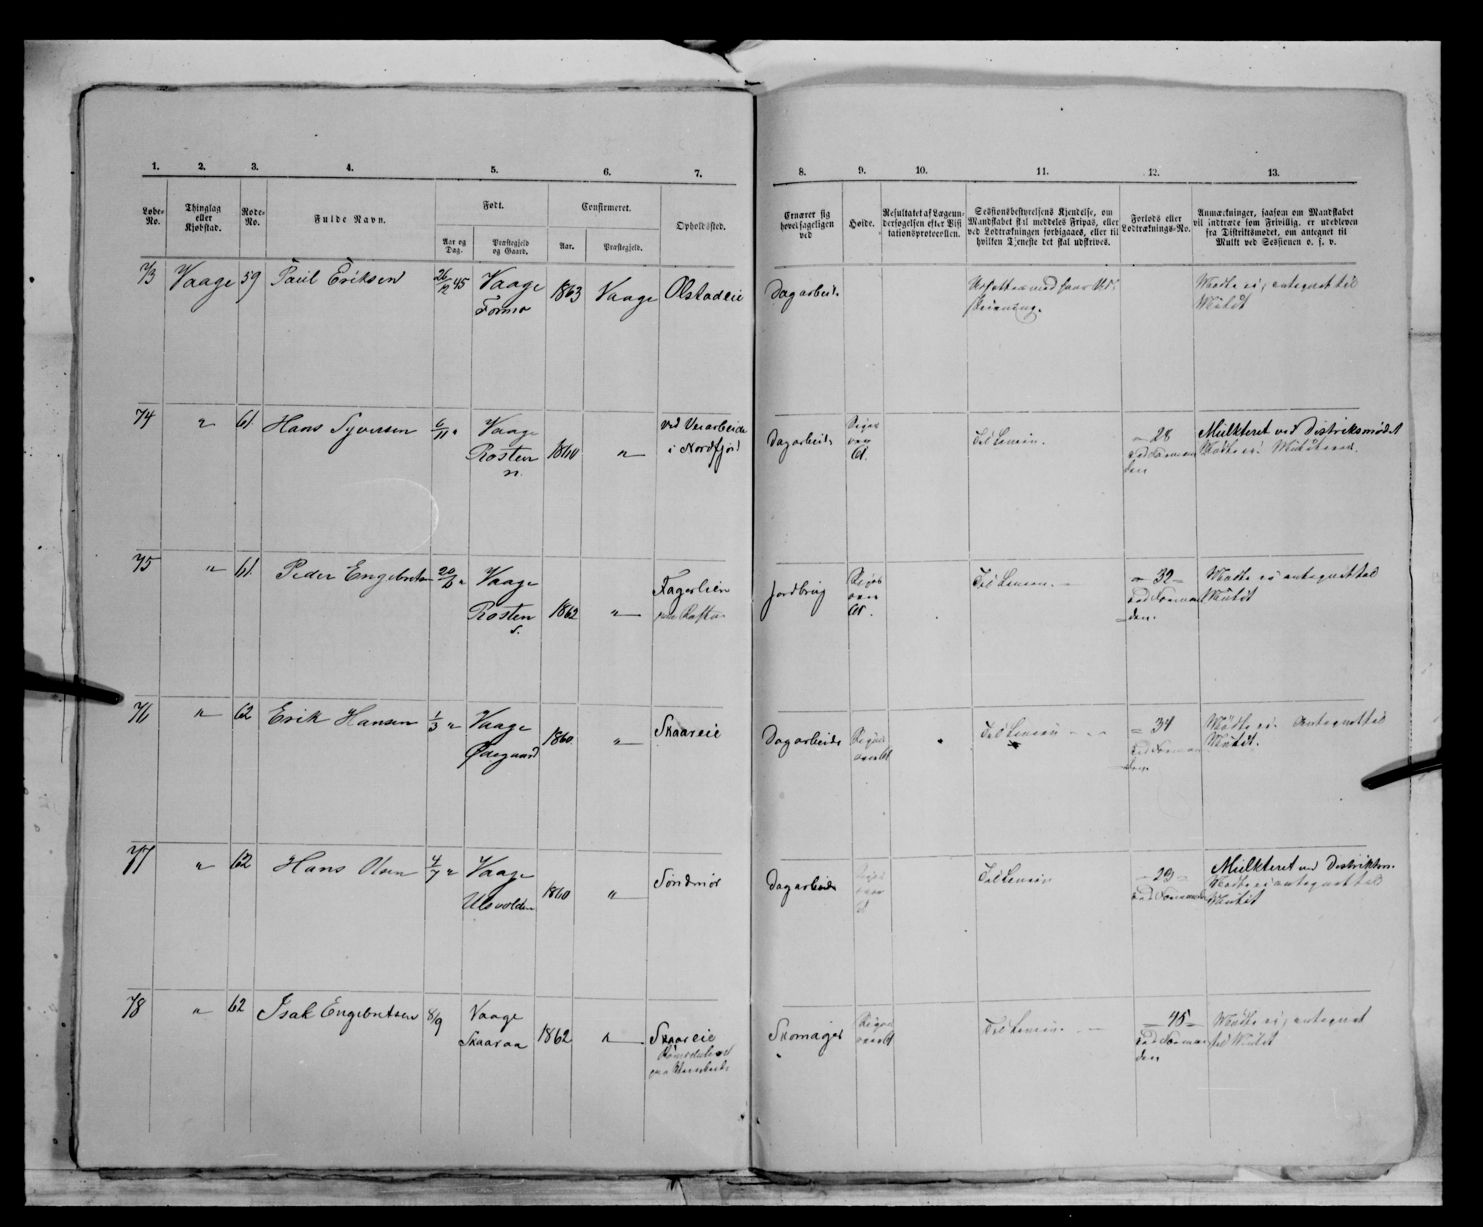 1. 2. 3. 4. 5. 6. 7. 8. 9. 10. 11. 12. 13.
Løbe-No.
Thinglag eller Kjøbstad.
Rode-No.
Fulde Navn.
Født.
Aar og Dag.
Præstegjeld og Gaard.
Confirmeret.
Aar.
Præstegjeld.
Opholdssted.
Ernærer sig hovedsageligen ved
Høide.
Resultatet af Lægeundersøgelsen efter Visitationsprotocollen.
Sessionsbestyrelsens Kjendelse, om Mandskabet skal meddeles Fripas, eller ved Lodtrækningen forbigaaes, eller til hvilken Tjeneste det skal udskrives.
Forlods eller Lodtræknings-No.
Anmærkninger, saasom om Mandskabet vil indtræde som Frivillig, er udebleven fra Distriktsmødet, om antegnet til Mulkt ved Sessionen o. s. v.
73 Vaage 59 Paul Eriksen 26/12 45 Vaage 1863 Vaage Olstadeie Dagarbeide Mødte ei, antegnet til
Formo Mulkt
74 " 61 Hans Syversen 6/11 " Vaage ved Veiarbeide Dagarbeide Til Linien. 28 Mulkteret ved Distriktsmødet
Rosten 1860 " i Nordfjord over Mødte ei.
n.
75 " 61 Peder Engebretsen 20/6 " Vaage Fagerlien Jordbrug Til Linien. 32 Mødte ei antegnet til
Rosten 1862 " over Mulkt
s.
76 " 62 Erik Hansen 1/3 " Vaage 1860 " Skaareie Dagarbeide Til Linien 34 Mødte ei. Antegnet til
Ødegaard Mulkt.
77 " 62 Hans Olsen 4/7 " Vaage Søndmør Dagarbeide Til Linien 29 Mulkteret ved Distriktsm.
Ulsvolden 1860 " Mødte ei antegnet til
Mulkt
78 " 62 Isak Engebretsen 8/9 Vaage Skomager Til Linien. 45 Mødte ei, antegnet
Skaaraa 1862 " Skaareie til Mulkt